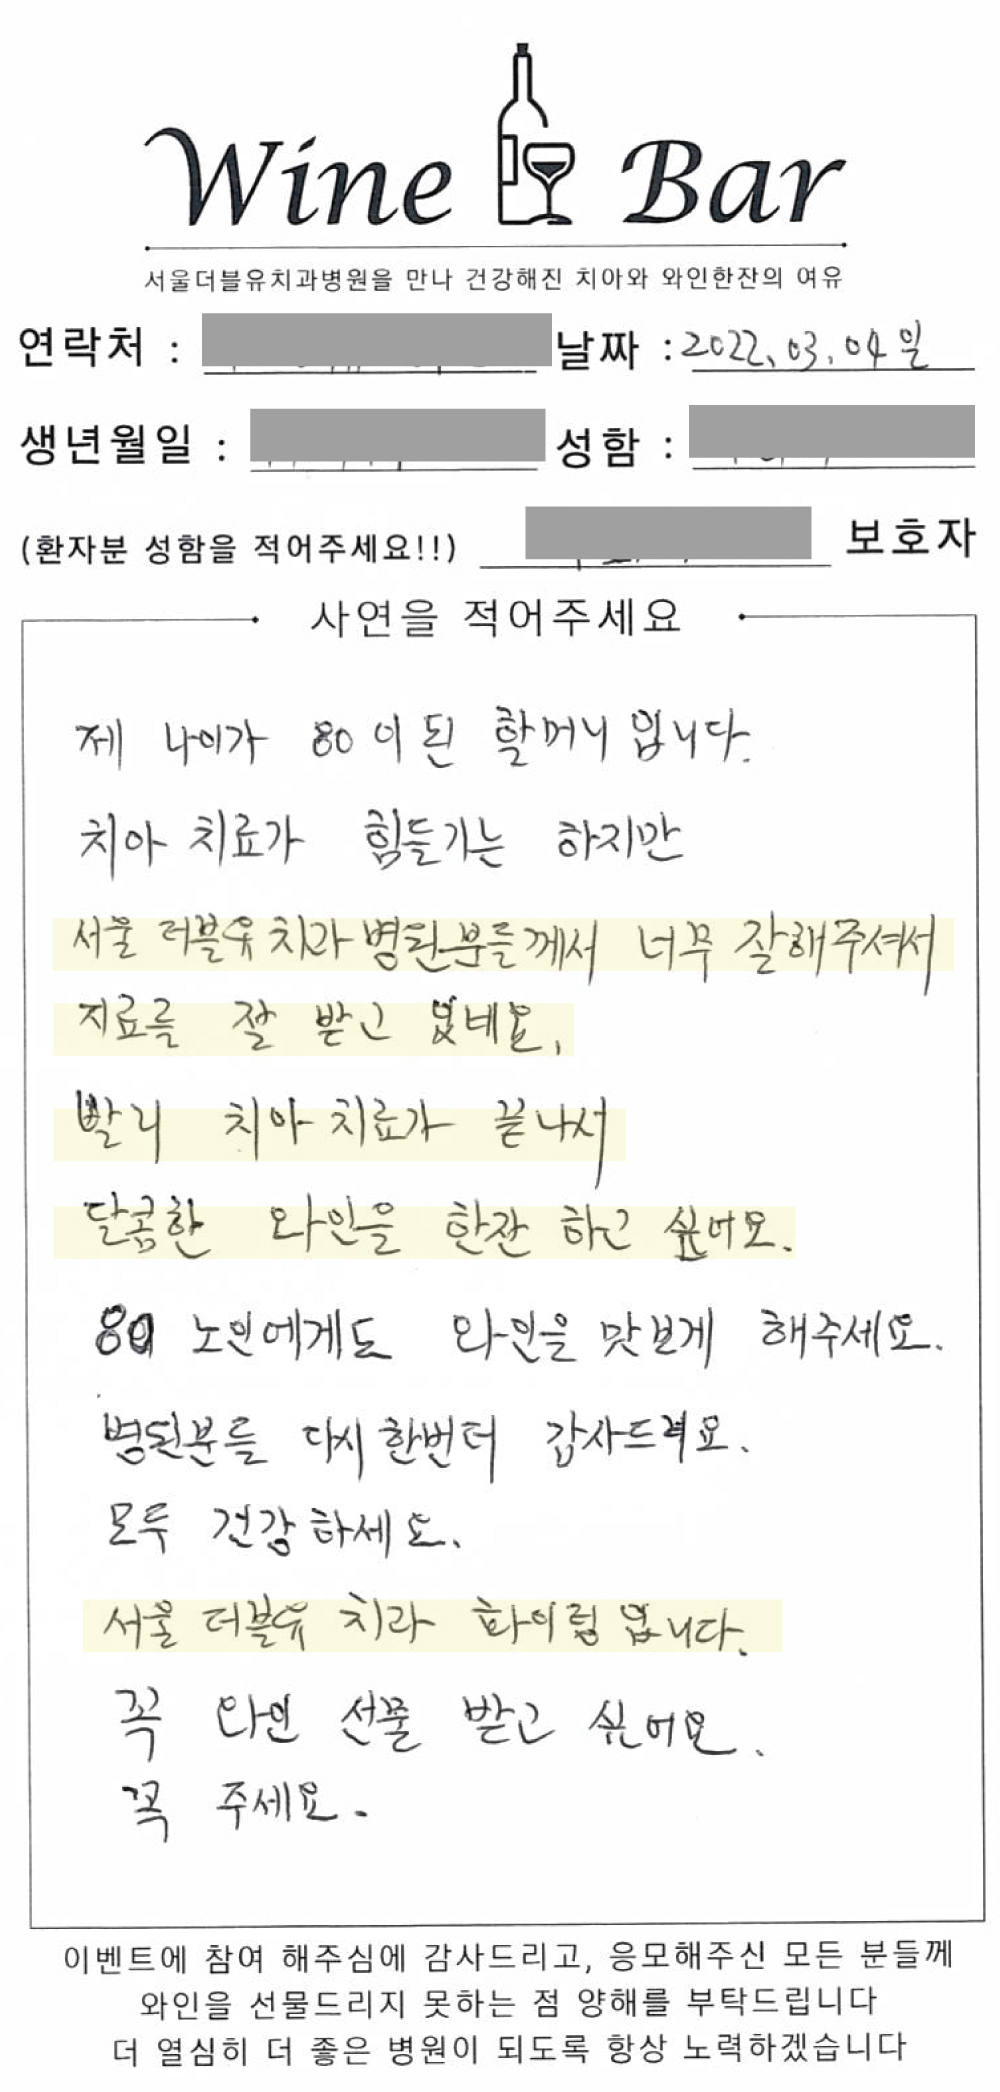 Wine Bar
서울더블유치과병원을 만나 건강해진 치아와 와인한잔의 여유
연락처 : 날짜 : 2022.03.04일
생년월일 : 성함 :
(환자분 성함을 적어주세요!!) 보호자
사연을 적어주세요
제 나이가 80이 된 할머니 입니다.
치아 치료가 힘들기는 하지만
서울 더블유 치과 병원분들께서 너무 잘해주셔서
치료를 잘 받고 있네요.
빨리 치아 치료가 끝나서
달콤한 와인을 한잔 하고 싶어요.
80 노인에게도 와인을 맛보게 해주세요.
병원분들 다시 한번더 감사드려요.
모두 건강하세요.
서울 더블유 치과 화이팅 입니다.
꼭 와인 선물 받고 싶어요.
꼭 주세요.
이벤트에 참여 해주심에 감사드리고, 응모해주신 모든 분들께
와인을 선물드리지 못하는 점 양해를 부탁드립니다
더 열심히 더 좋은 병원이 되도록 항상 노력하겠습니다